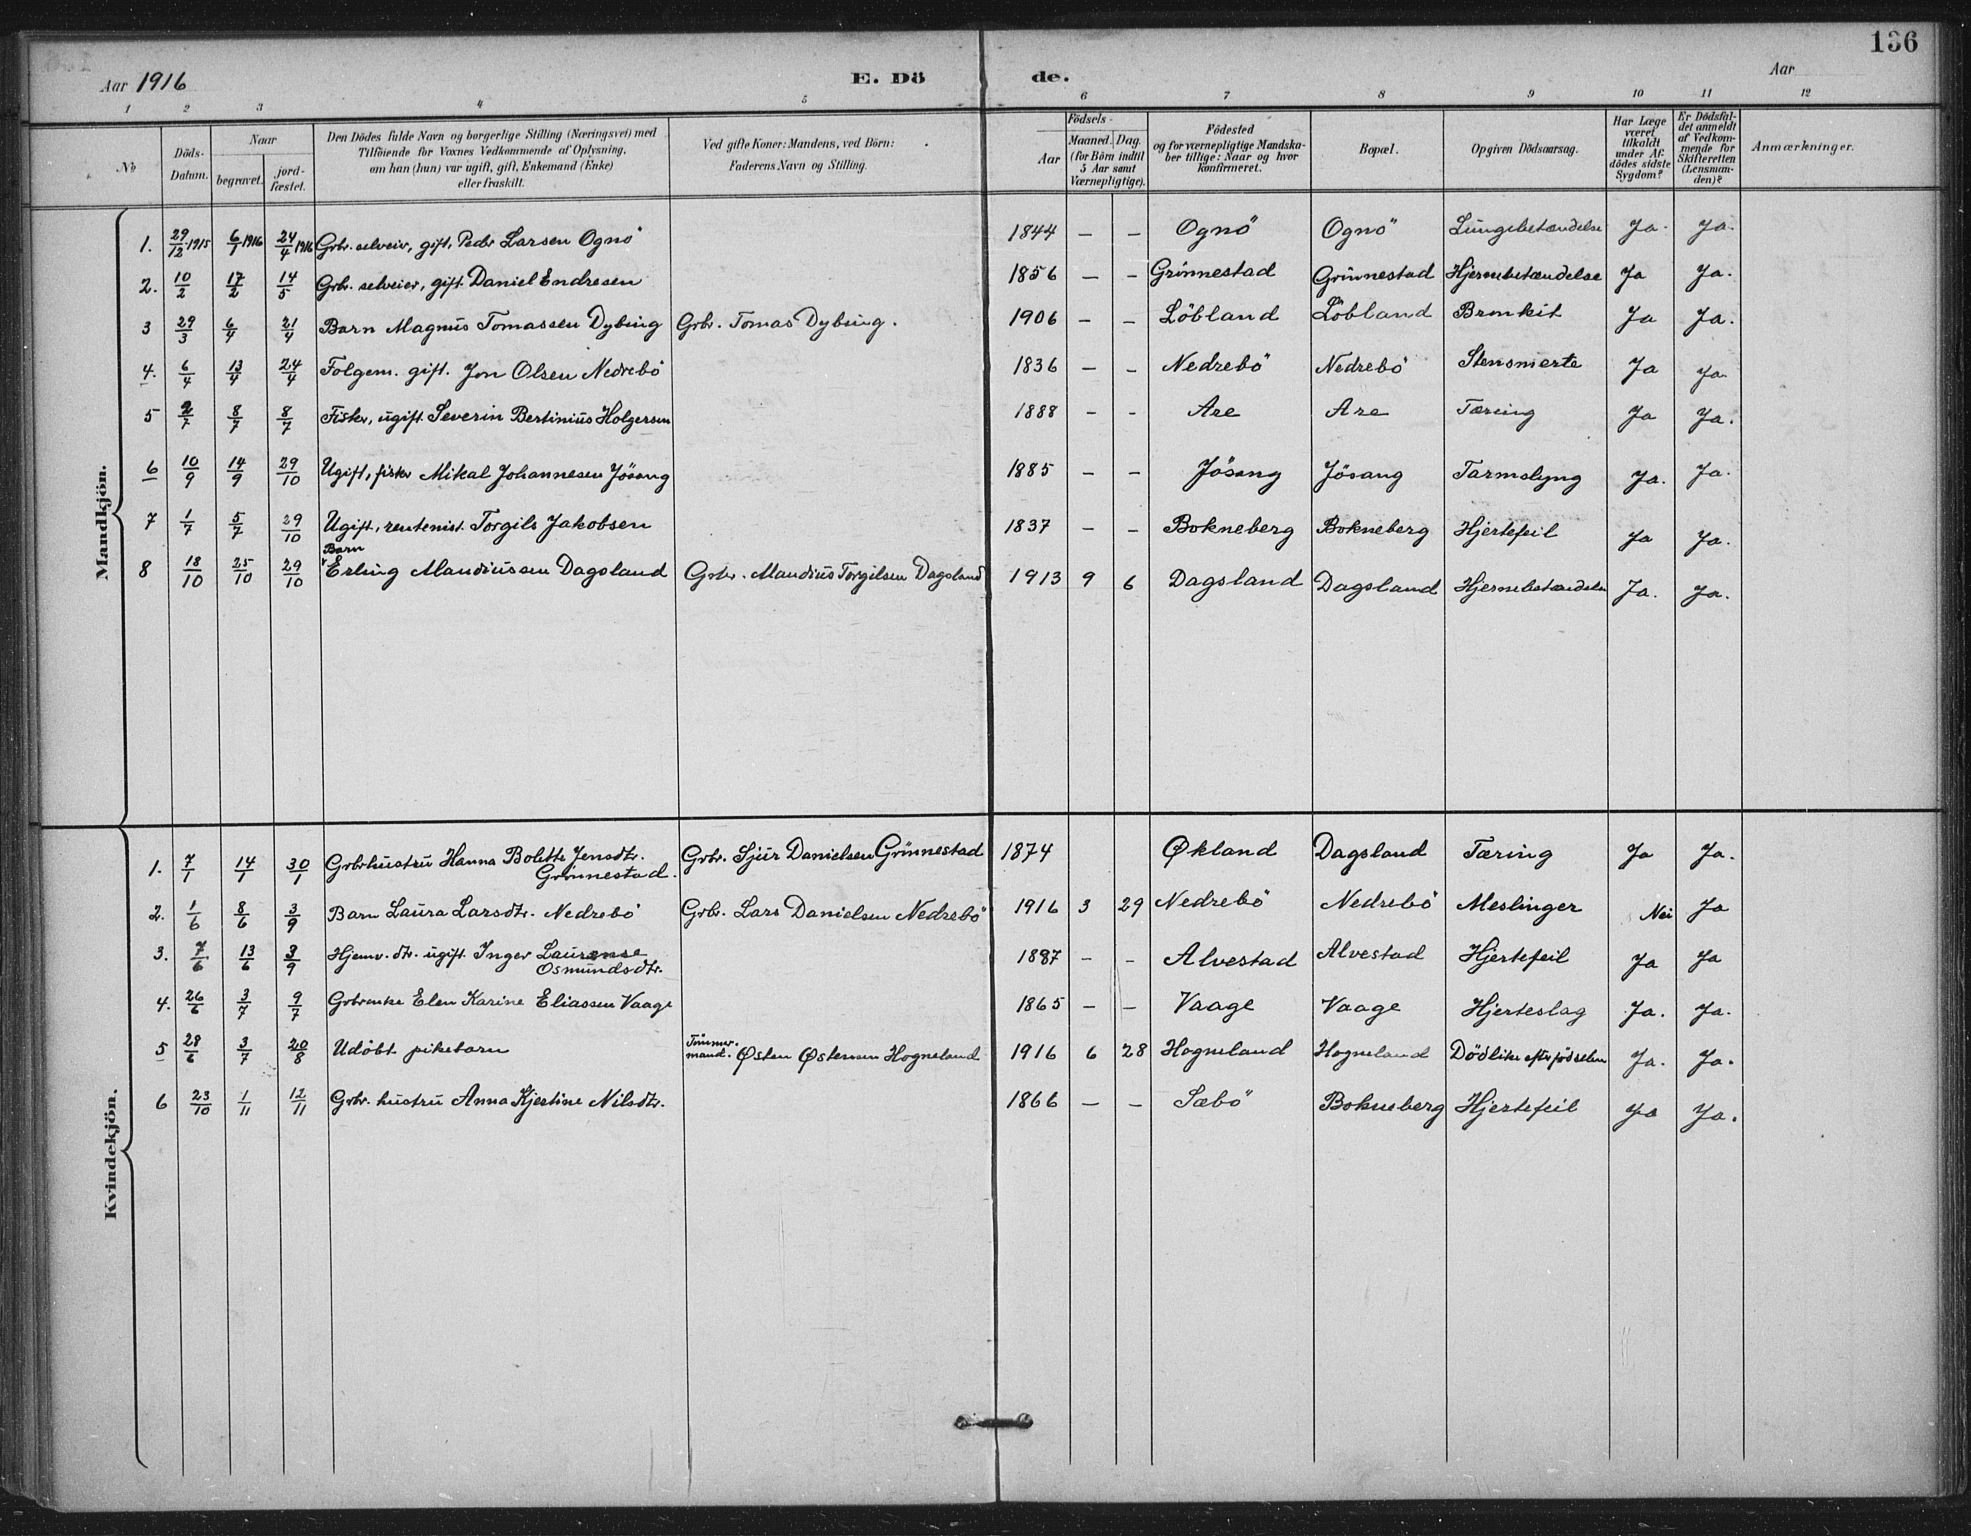 136
Aar 1916 E. Dö de. Aar
1 2 3 4 5 6 7 8 9 10 11 12
No
Döds-Datum.
Naar
begravet.
jord-fæstet.
Den Dödes fulde Navn og borgerlige Stilling (Næringsvei) med
Tilföiende for Voxnes Vedkommende af Oplysning,
om han (hun) var ugift, gift, Enkemand (Enke)
eller fraskilt.
Ved gifte Koner: Mandens, ved Börn:
Faderens Navn og Stilling.
Födsels-
Aar
Maaned. Dag.
(for Börn indtil
5 Aar samt
Værnepligtige).
Födested
og for værnepligtige Mandska-
ber tillige: Naar og hvor
konfirmeret.
Bopæl.
Opgiven Dödsaarsag.
Har Læge
været
tilkaldt
under Af-
dödes sidste
Sygdom?
Er Dödsfal-
det anmeldt
af Vedkom-
mende for
Skifteretten
(Lensman-
den)?
Anmærkninger.
Mandkjön.
1. 29/12 1915 6/1 1916 24/4 1916 Grbr. selveier, gift, Peder Larsen Ognö 1844 – – Ognö Ognö Lungebetændelse Ja. Ja.
2. 10/2 17/2 14/5 Grbr. selveier, gift. Daniel Endresen 1856 – – Grönnestad Grönnestad Hjernebetændelse Ja Ja.
3 29/3 6/4 21/4 Barn Magnus Tomassen Dybing Grbr. Tomas Dybing. 1906 – – Löbland Löbland Bronkit Ja Ja.
4. 6/4 13/4 24/4 Folgem. gift. Jon Olsen Nedrebö 1836 – – Nedrebö Nedrebö Stensmerte Ja Ja
5 2/7 8/7 8/7 Fisker, ugift. Severin Bertinius Holgersen 1888 – – Are Are Tæring Ja Ja.
6 10/9 14/9 29/10 Ugift, fisker Mikal Johannesen Jösang 1885 – – Jösang Jösang Tarmslyng Ja. Ja.
7 1/7 5/7 29/10 Ugift, rentenist. Torgils Jakobsen 1837 – – Bokneberg Bokneberg Hjertefeil Ja Ja.
Barn
8 18/10 25/10 29/10 Erling Mandiussen Dagsland Grbr. Mandius Torgilsen Dagsland 1913 9 6 Dagsland Dagsland Hjernebetændelse Ja. Ja.
Kvindekjön.
1. 7/1 14/1 30/1 Grbrhustru Hanna Bolette Jensdtr. Grbr. Sjur Danielsen Grönnestad 1874 Økland Dagsland Tæring Ja Ja.
Grönnestad.
2. 1/6 8/6 3/9 Barn Laura Larsdtr. Nedrebö Grbr. Lars Danielsen Nedrebö 1916 3 29 Nedrebö Nedrebö Meslinger Nei Ja
3. 7/6 13/6 3/9 Hjemv. dtr. ugift. Inger Laurense 1887 – – Alvestad Alvestad Hjertefeil Ja Ja
Osmundsdtr.
4. 26/6 3/7 9/7 Grbrenke Elen Karine Eliassen Vaage 1865 – – Vaage Vaage Hjerteslag Ja. Ja.
5 28/6 3/7 20/8 Udöbt pikebarn Tömmer-
mand. Østen Østensen Hogneland 1916 6 28 Hogneland Hogneland Död like efter födselen Ja. Ja.
6 23/10 1/11 12/11 Grbr. hustru Anna Kjestine Nilsdtr. 1866 – – Sæbö Bokneberg Hjertefeil Ja Ja.